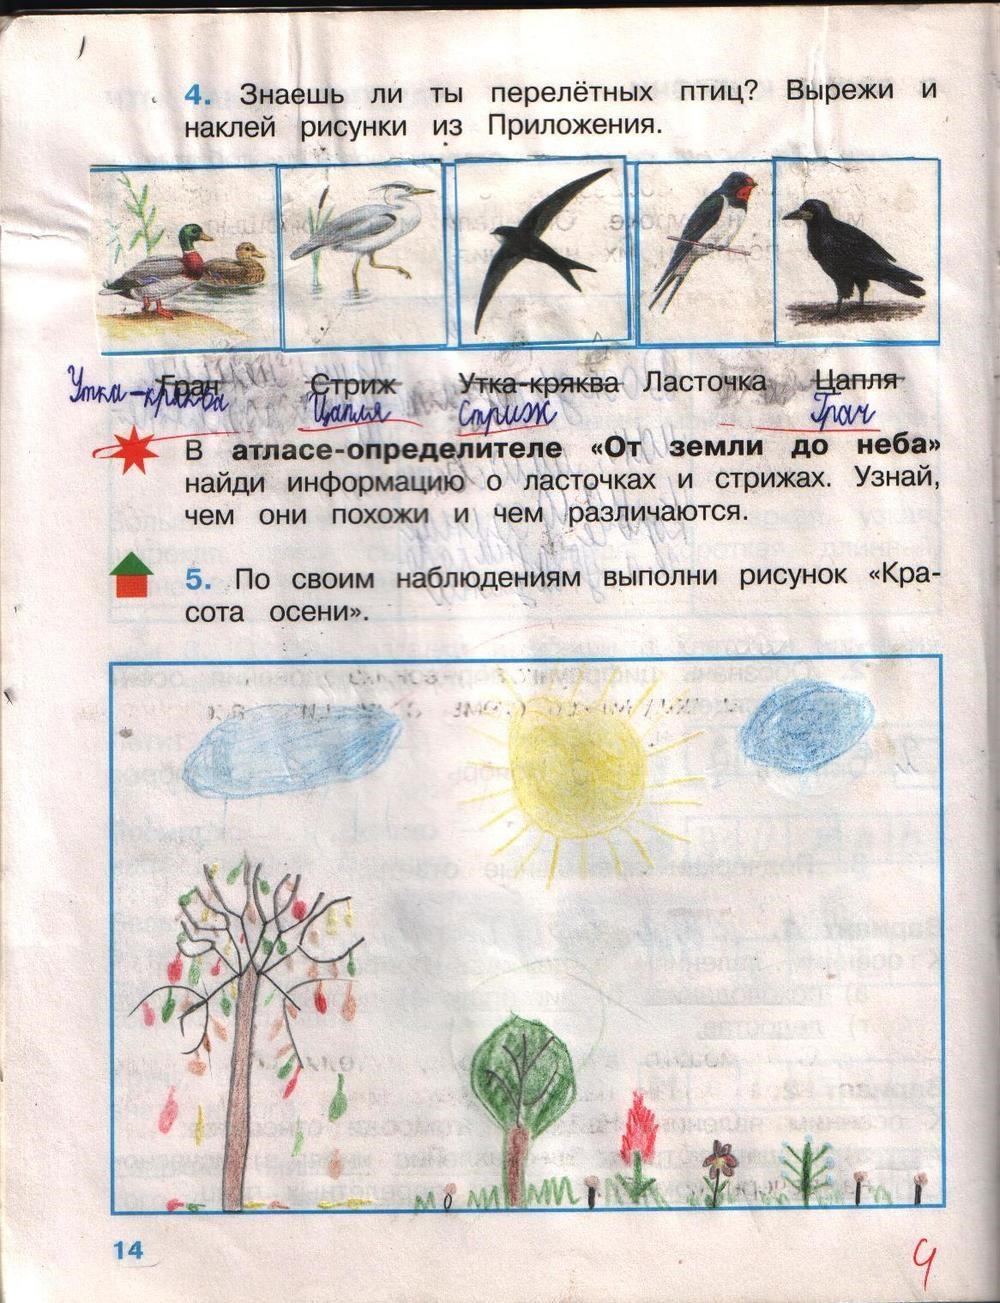 4. Знаешь ли ты перелётных птиц? Вырежи и
наклей рисунки из Приложения.
Грач Стриж Утка-кряква Ласточка Цапля
Утка-кряква Цапля Стриж Грач
В атласе-определителе «От земли до неба»
найди информацию о ласточках и стрижах. Узнай,
чем они похожи и чем различаются.
5. По своим наблюдениям выполни рисунок «Кра-
сота осени».
14